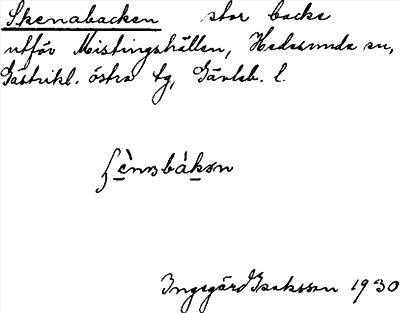 Skenabacken stor backe
utför Mistingshällen, Hedesunda sn,
Gästrikl. östra tg, Gävleb. l.
ʃènɐbákən
Ingegärd Isaksson 1930